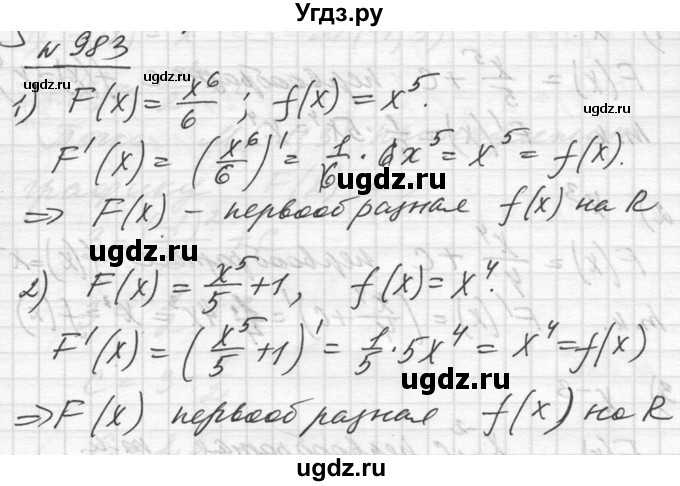 Угдз.ру
№ 983
ugdz.ru ugdz.ru ugdz.ru
1) F(x) = x⁶/6 ; f(x) = x⁵.
F'(x) = (x⁶/6)' = 1/6 · 6x⁵ = x⁵ = f(x).
ugdz.ru
⇒ F(x) – первообразная f(x) на R
ugdz.ru
2) F(x) = x⁵/5 + 1, f(x) = x⁴.
F'(x) = (x⁵/5 + 1)' = 1/5 · 5x⁴ = x⁴ = f(x)
ugdz.ru
⇒ F(x) первообразная f(x) на R
ugdz.ru